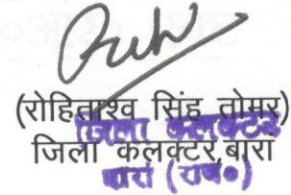 (रोहिताश्व सिंह तोमर)
जिला कलक्टर
जिला कलक्टर,बारा
बारां (राज०)